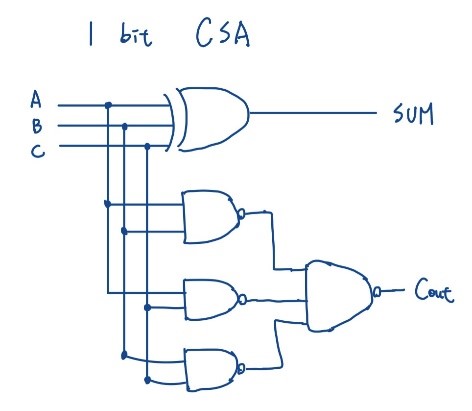 1 bit CSA
A
B
C
SUM
Cout